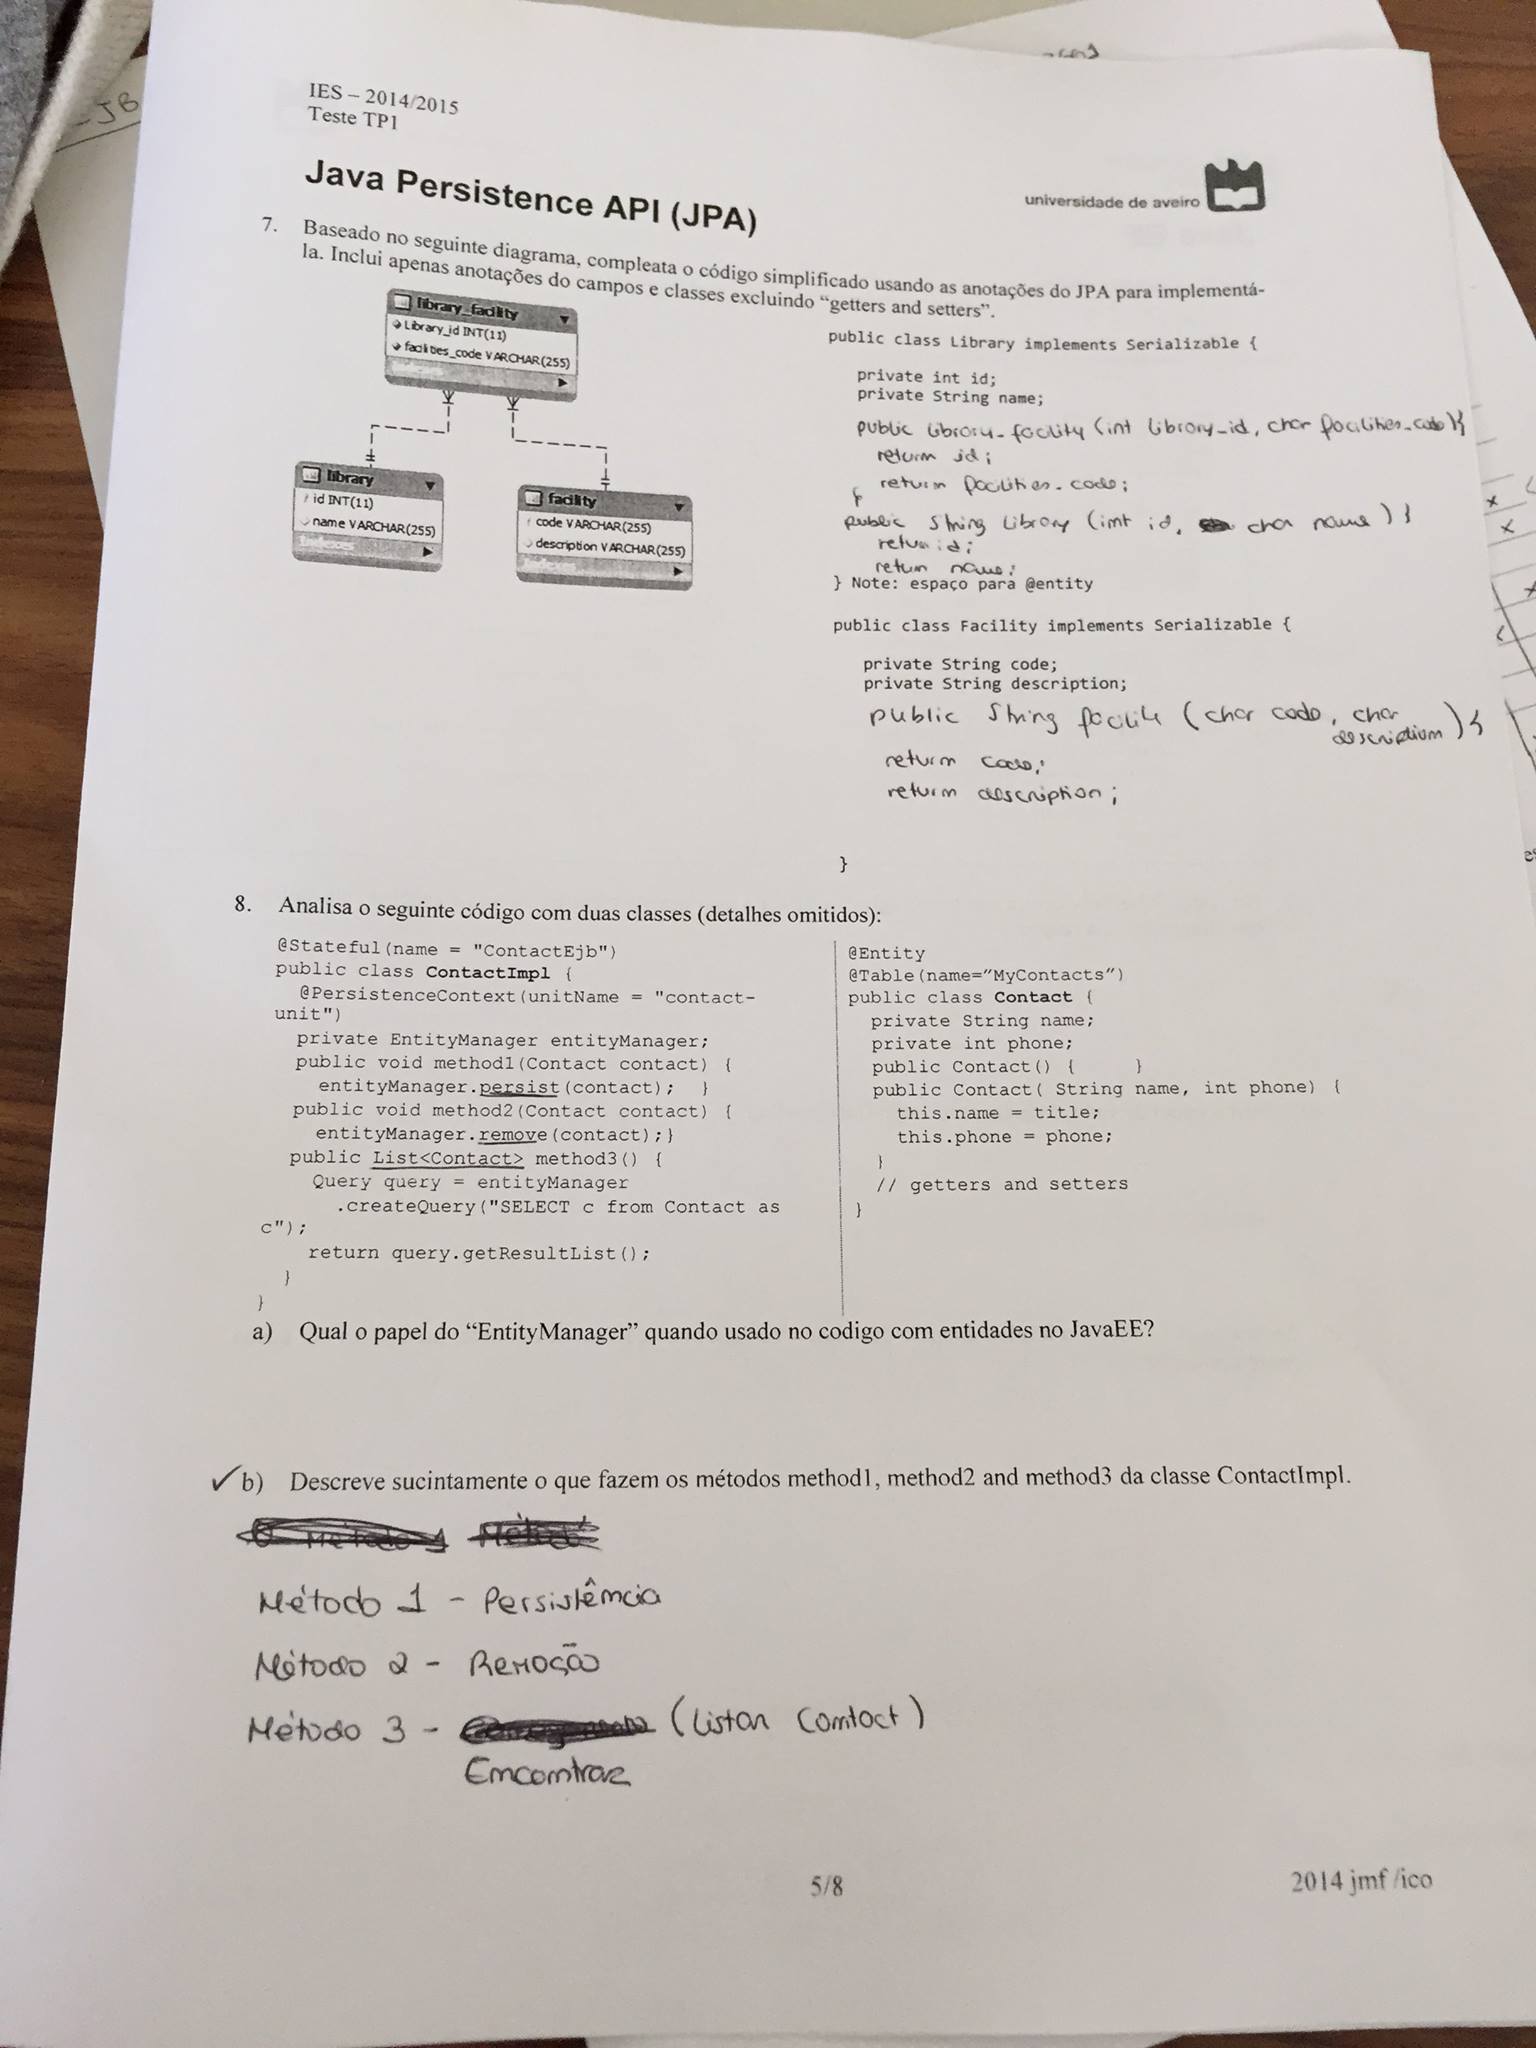 IES – 2014/2015
Teste TP1
Java Persistence API (JPA)
universidade de aveiro
7. Baseado no seguinte diagrama, compleata o código simplificado usando as anotações do JPA para implementá-
la. Inclui apenas anotações do campos e classes excluindo “getters and setters”.
library_facility
Library_id INT(11)
facilities_code VARCHAR(255)
library
id INT(11)
name VARCHAR(255)
Indexes
facility
code VARCHAR(255)
description VARCHAR(255)
public class Library implements Serializable {
private int id;
private String name;
public library_facility (int library_id, char facilities_code){
return id;
return facilities_code;
}
public String Library (int id, char name) }
return id;
return name;
} Note: espaço para @entity
public class Facility implements Serializable {
private String code;
private String description;
public String facility (char code, char
description) {
return code;
return description;
}
8. Analisa o seguinte código com duas classes (detalhes omitidos):
@Stateful(name = "ContactEjb")
public class ContactImpl {
@PersistenceContext(unitName = "contact-
unit")
private EntityManager entityManager;
public void method1(Contact contact) {
entityManager.persist(contact); }
public void method2(Contact contact) {
entityManager.remove(contact);}
public List<Contact> method3() {
Query query = entityManager
.createQuery("SELECT c from Contact as
c");
return query.getResultList();
}
}
@Entity
@Table(name=”MyContacts”)
public class Contact {
private String name;
private int phone;
public Contact() { }
public Contact( String name, int phone) {
this.name = title;
this.phone = phone;
}
// getters and setters
}
a) Qual o papel do “EntityManager” quando usado no codigo com entidades no JavaEE?
✓ b) Descreve sucintamente o que fazem os métodos method1, method2 and method3 da classe ContactImpl.
Método 1 - Persistência
Método 2 - Remoção
Método 3 - (Listar Contact)
Encontrar
5/8
2014 jmf /ico